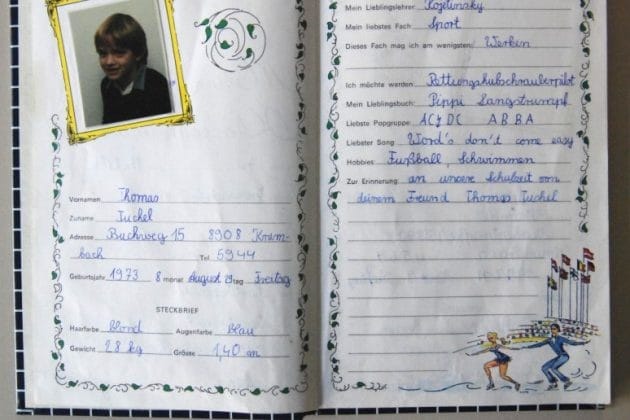 Vornamen Thomas
Zuname Tuchel
Adresse Buchweg 15 8908 Krum-
bach Tel. 5944
Geburtsjahr 1973 8 monat August 29 tag Freitag
STECKBRIEF
Haarfarbe blond Augenfarbe blau
Gewicht 28 kg Grösse 1,40 m
Mein Lieblingslehrer:
Mein liebstes Fach: Sport
Dieses Fach mag ich am wenigsten: Werken
Ich möchte werden: Rettungshubschrauberpilot
Mein Lieblingsbuch: Pippi Langstrumpf
Liebste Popgruppe: AC DC ABBA
Liebster Song: Word's don't come easy
Hobbies: Fußball, Schwimmen
Zur Erinnerung: an unsere Schulzeit von
deinem Freund Thomas Tuchel